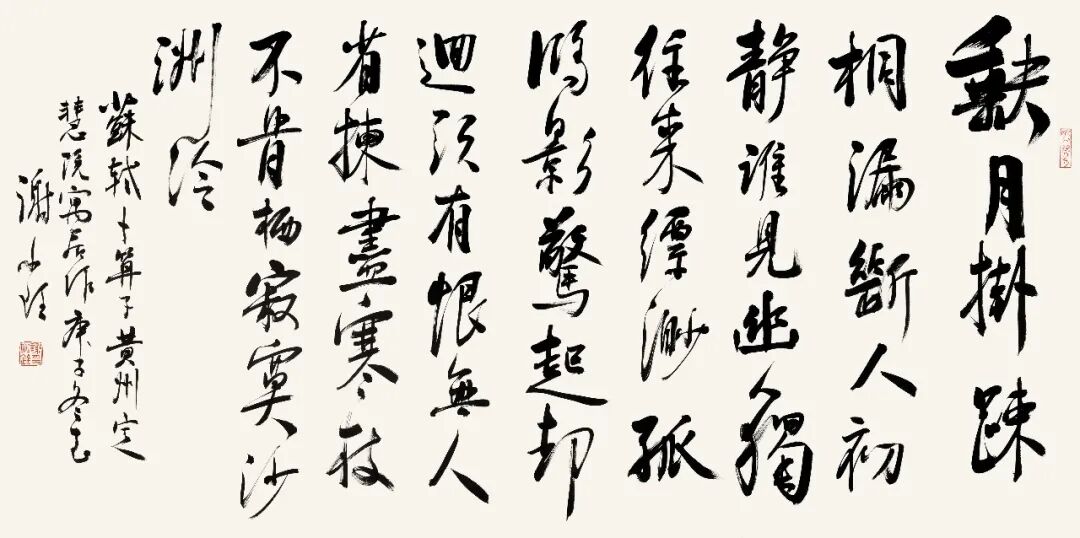 缺月掛踈
桐漏斷人初
静誰見幽人獨
往來縹渺孤
鴻影驚起却
迴頭有恨無人
省揀盡寒枝
不肯栖寂寞沙
洲冷
蘇軾卜算子黄州定
慧院寓居作庚子冬玉
謝小